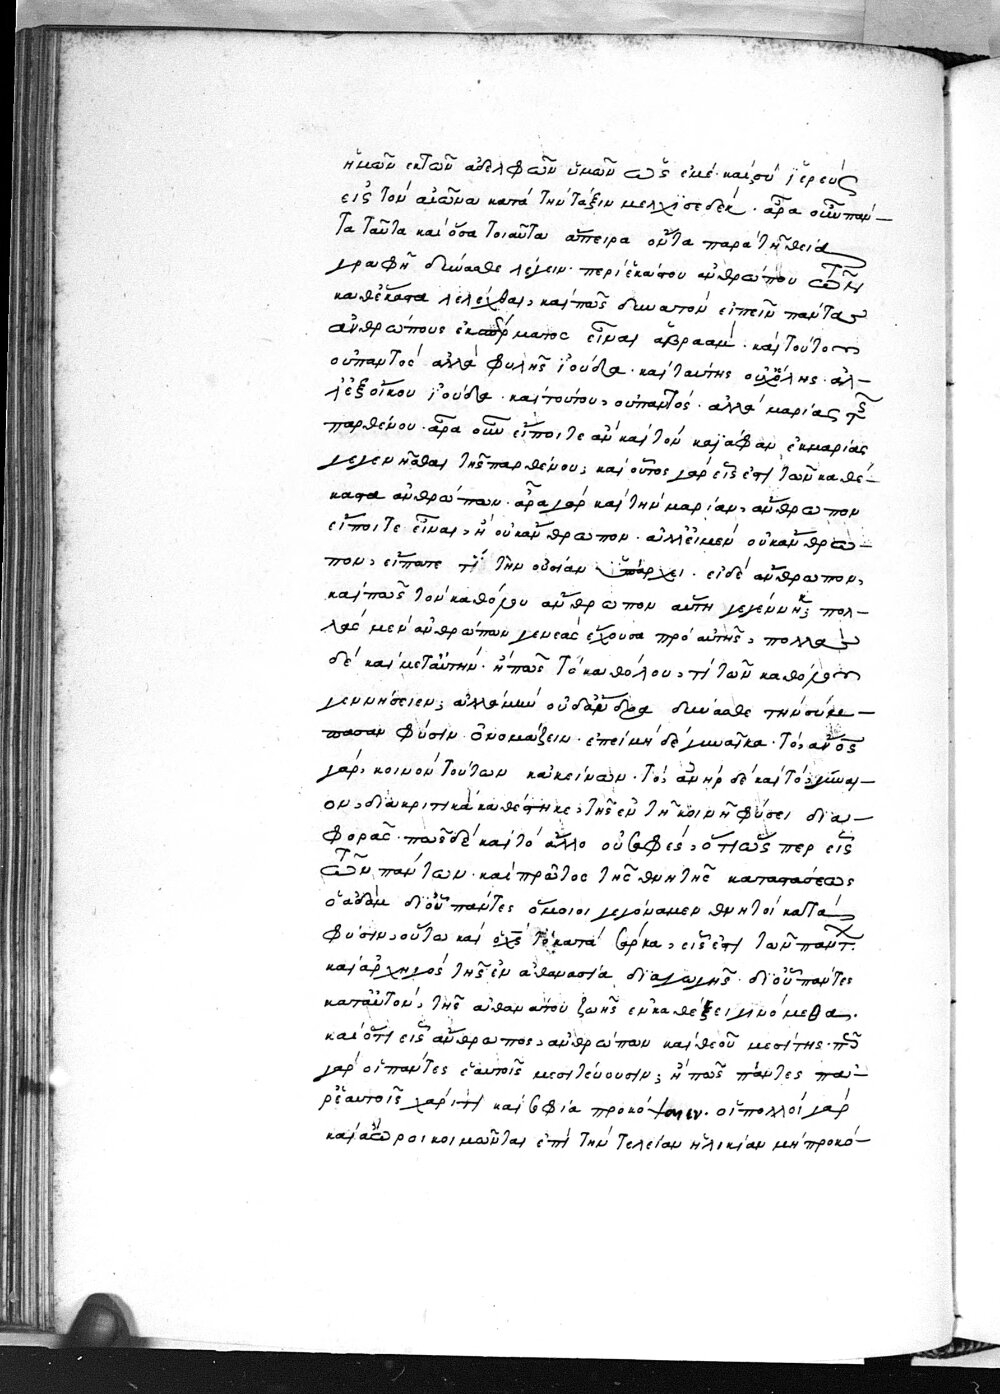 ἡμῶν ἐκ τῶν ἀδελφῶν ὑμῶν ὡς ἐμέ· καὶ σὺ ἱερεὺς
εἰς τὸν αἰῶνα κατὰ τὴν τάξιν μελχισεδέκ· ἆρα οὖν πάν-
τα ταῦτα καὶ ὅσα τοιαῦτα ἄπειρα ὄντα παρὰ τῇ θείᾳ
γραφῇ δύνασθε λέγειν περὶ ἑκάστου ἀνθρώπου τῶν
καθέκαστα λελέχθαι, καὶ πῶς δυνατὸν εἰπεῖν πάντας
ἀνθρώπους ἐκ σπέρματος εἶναι ἀβραάμ· καὶ τούτου
οὐ παντὸς ἀλλὰ φυλῆς ἰούδα· καὶ ταύτης οὐχ ὅλης· ἀλ-
λ' ἐξ οἴκου ἰούδα· καὶ τούτου, οὐ παντός· ἀλλὰ μαρίας τῆς
παρθένου· ἆρα οὖν εἴποιτε ἂν καὶ τὸν καϊάφαν ἐκ μαρίας
γεγενῆσθαι τῆς παρθένου; καὶ οὗτος γὰρ εἷς ἐστὶ τῶν καθέ-
καστα ἀνθρώπων· ἆρα γὰρ καὶ τὴν μαρίαν, ἄνθρωπον
εἴποιτε εἶναι, ἢ οὐκ ἄνθρωπον· ἀλλ' εἰ μὲν οὐκ ἄνθρω-
πον, εἴπατε τί τὴν οὐσίαν ὑπάρχει· εἰ δὲ ἄνθρωπον,
καὶ πῶς τὸν καθόλου ἄνθρωπον αὕτη γεγέννηκε πολ-
λὰς μὲν ἀνθρώπων γενεὰς ἔχουσα πρὸ αὐτῆς, πολλὰς
δὲ καὶ μετ' αὐτήν· ἢ πῶς τὸ καθόλου, τὶ τῶν καθόλου
γεννήσειεν; ἀλλὰ μὴν οὐδ' ἄνδρα δύνασθε τὴν σύμ-
πασαν φύσιν ὀνομάζειν· ἐπεὶ μηδὲ γυναῖκα· τὸ, ἄνος
γὰρ, κοινὸν τούτων κἀκείνων· τὸ, ἀνὴρ δὲ καὶ τὸ, γύναι-
ον, διακριτικὰ καθέστηκε, τῆς ἐν τῇ κοινῇ φύσει δια-
φορᾶς· πῶς δὲ καὶ τὸ ἄλλο οὐ σαφές, ὅτι ὥσπερ εἷς
τῶν πάντων καὶ πρῶτος τῆς θνητῆς καταστάσεως
ὁ ἀδὰμ δι' οὗ πάντες ὅμοιοι γεγόναμεν θνητοὶ κατὰ
φύσιν, οὕτω καὶ ὁ χς τὸ κατὰ σάρκα, εἷς ἐστὶ τῶν πάντ
καὶ ἀρχηγὸς τῆς ἐν ἀθανασίᾳ διαγωγῆς· δι' οὗ πάντες
κατ' αὐτὸν, τῆς ἀθανάτου ζωῆς ἐν καθέξει γινόμεθα.
καὶ ὅτι εἷς ἄνθρωπος, ἀνθρώπων καὶ θεοῦ μεσίτης· πῶς
γὰρ οἱ πάντες ἑαυτοῖς μεσιτεύουσιν; ἢ πῶς πάντες πα-
ρ' ἑαυτοῖς χάριτι καὶ σοφίᾳ προκόπτομεν· οἱ πολλοὶ γὰρ
καὶ ἄωροι κοιμῶνται ἐπὶ τὴν τελείαν ἡλικίαν μὴ προκό-